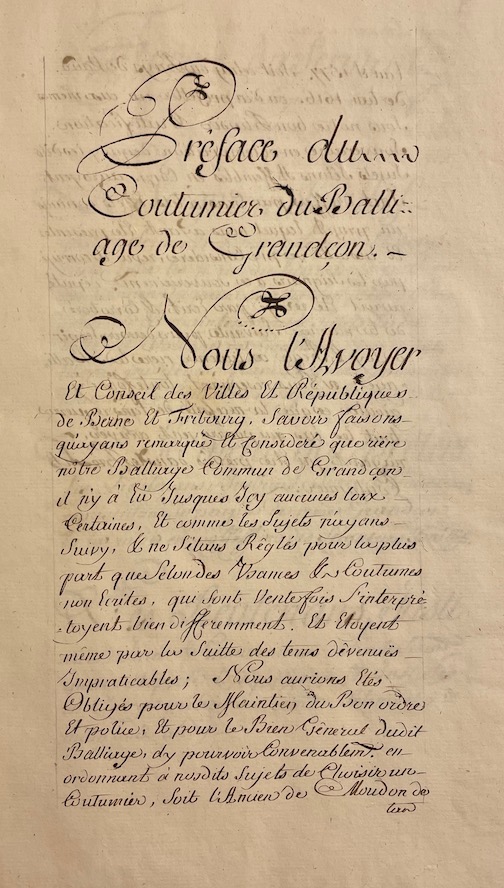 Préface du
Coutumier du Balli=
age de Grandçon.
Nous l'Avoyer
Et Conseil des Villes Et Républiques
de Berne Et Fribourg, Savoir faisons
qu'ayans remarqué Et Consideré que riére
nôtre Balliage Commun de Grandçon
il n'y à Eù Jusques Icy aucunes loix
Certaines, Et comme les Sujets n'ayans
Suivy, & ne S'étans Réglés pour la plus
part que Selon des Usances & Coutumes
non Ecrites, qui Sont Souventefois S'interpré=
toyent bien differemment. Et Etoyent
même par la Suitte des tems dévenuës
Impraticables; Nous aurions Etés
Obligés pour le Maintien du Bon ordre
Et police, Et pour le Bien Général dudit
Balliage, d'y pourvoir Convenablemt. en
ordonnant à nosdits Sujets de Choisir un
Coutumier, Soit l'Ancien de Moudon de